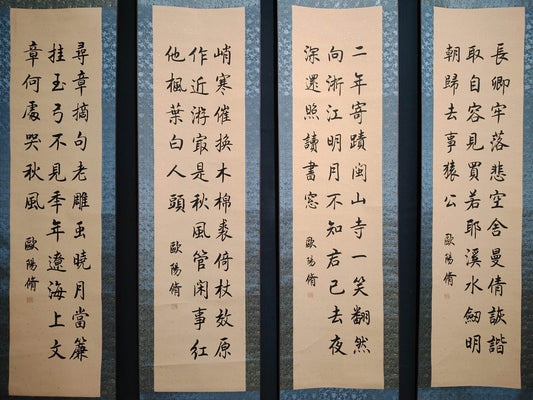 長卿牢落悲空舍曼倩詼諧
取自容見買若耶溪水劒明
朝歸去事猿公
歐陽脩
二年寄蹟閩山寺一笑翻然
向浙江明月不知君已去夜
深還照讀書窓
歐陽脩
峭寒催換木棉裘倚杖郊原
作近游最是秋風管閑事紅
他楓葉白人頭
歐陽脩
尋章摘句老雕虫曉月當簾
挂玉弓不見年年遼海上文
章何處哭秋風
歐陽脩